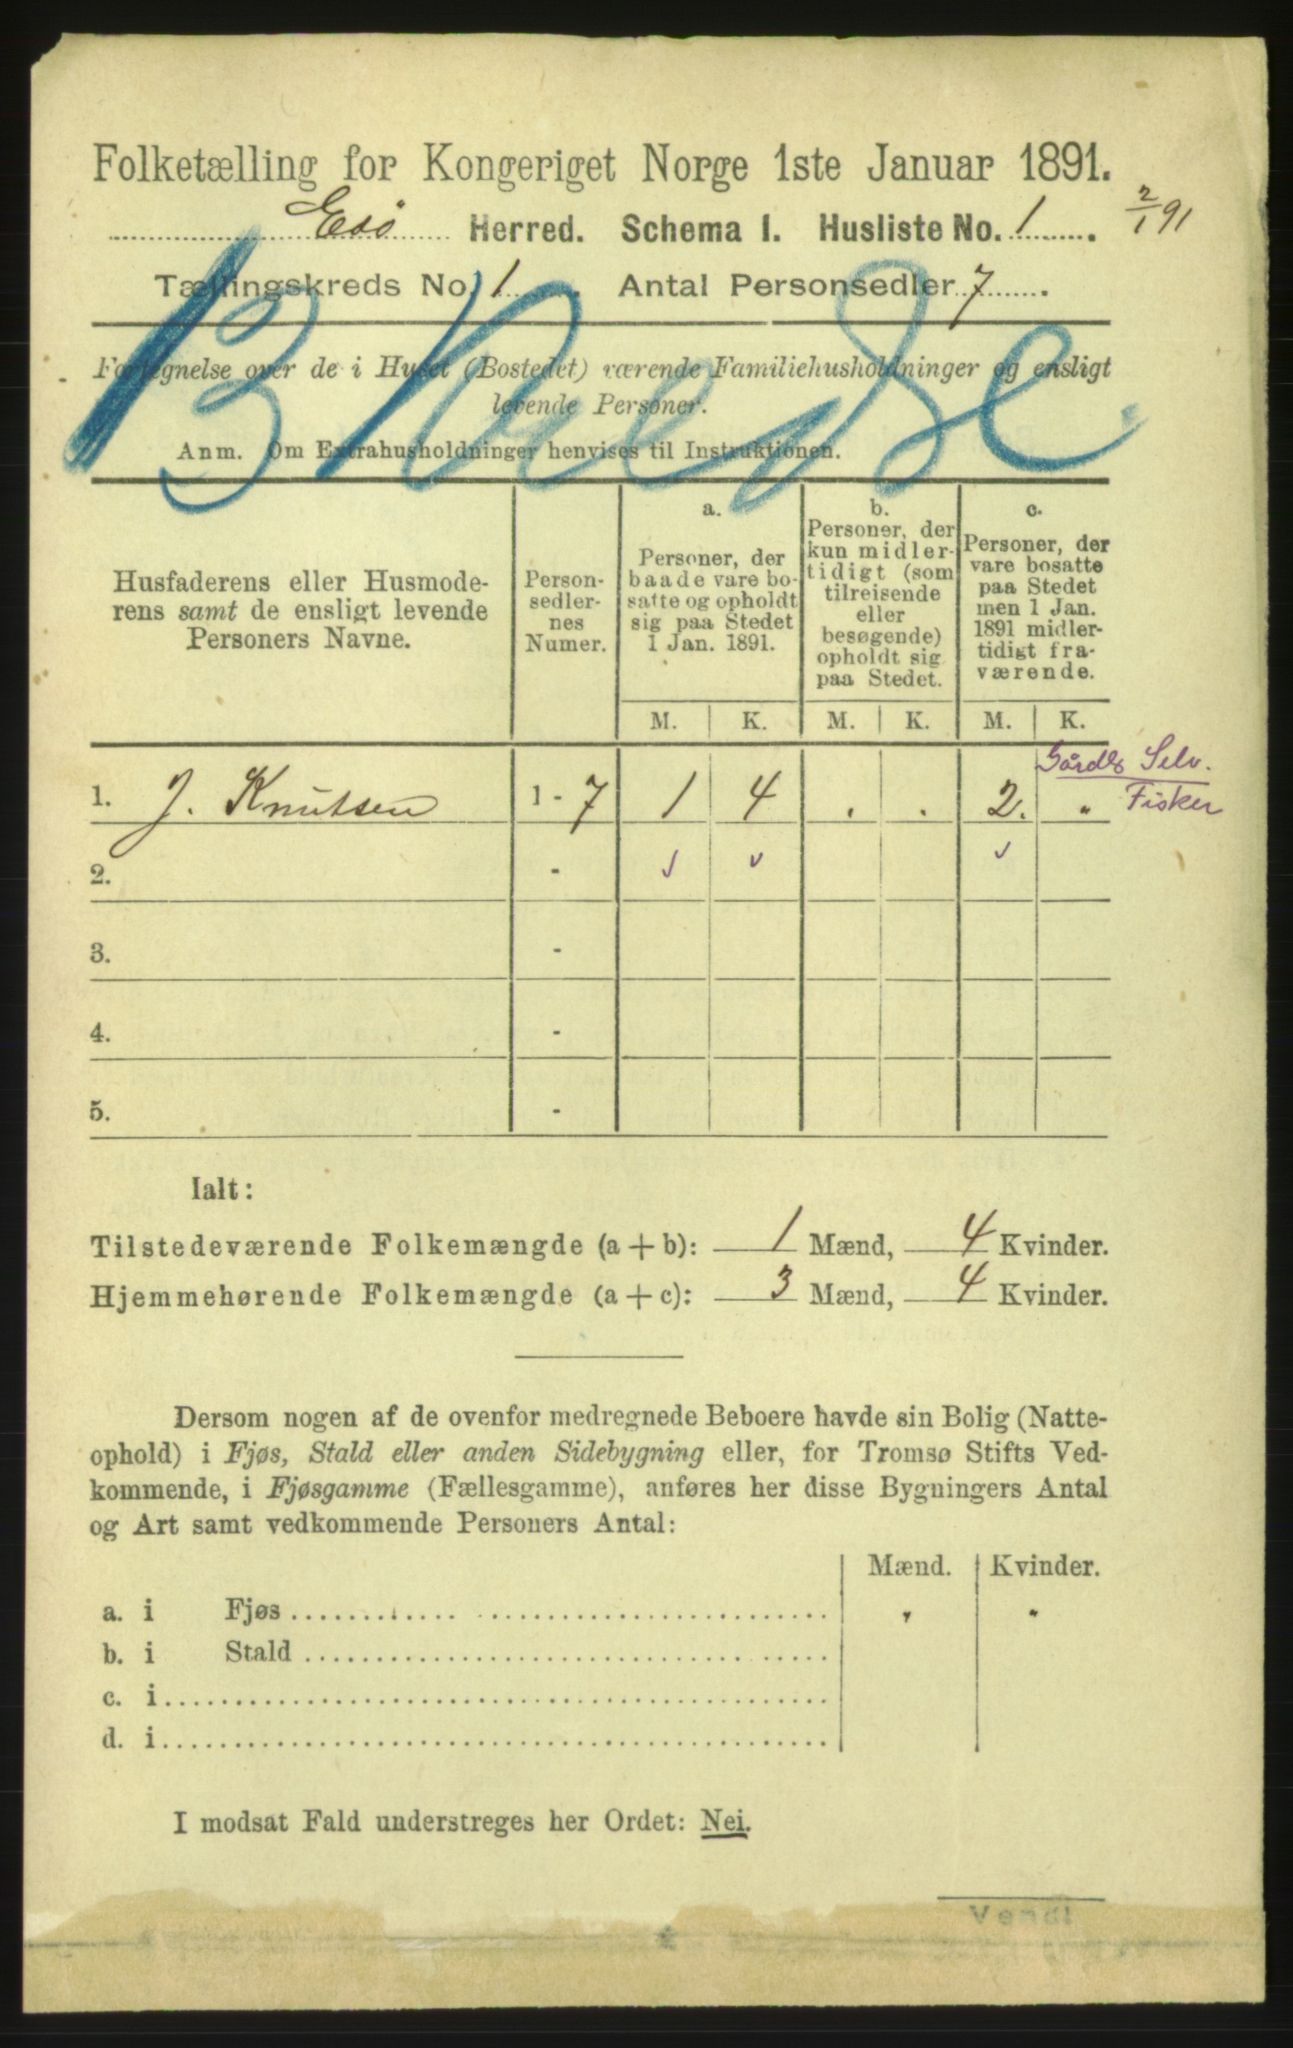 Folketælling for Kongeriget Norge 1ste Januar 1891.
Edø Herred. Schema I. Husliste No. 1. 2/1 91
Tællingskreds No. 1. Antal Personsedler 7.
Fortegnelse over de i Huset (Bostedet) værende Familiehusholdninger og ensligt
levende Personer.
Anm. Om Extrahusholdninger henvises til Instruktionen.
Husfaderens eller Husmode-
rens samt de ensligt levende
Personers Navne.
Person-
sedler-
nes
Numer.
a.
Personer, der
baade vare bo-
satte og opholdt
sig paa Stedet
1 Jan. 1891.
b.
Personer, der
kun midler-
tidigt (som
tilreisende
eller
besøgende)
opholdt sig
paa Stedet.
c.
Personer, der
vare bosatte
paa Stedet
men 1 Jan.
1891 midler-
tidigt fra-
værende.
M. K. M. K. M. K.
Gårdbr Selv.
Fisker
1. J. Knutsen 1 - 7 1 4 . . 2. "
2. -
3. -
4. -
5. -
Ialt:
Tilstedeværende Folkemængde (a + b): 1 Mænd, 4 Kvinder.
Hjemmehørende Folkemængde (a + c): 3 Mænd, 4 Kvinder.
Dersom nogen af de ovenfor medregnede Beboere havde sin Bolig (Natte-
ophold) i Fjøs, Stald eller anden Sidebygning eller, for Tromsø Stifts Ved-
kommende, i Fjøsgamme (Fællesgamme), anføres her disse Bygningers Antal
og Art samt vedkommende Personers Antal:
Mænd. Kvinder.
a. i Fjøs " "
b. i Stald
c. i
d. i
I modsat Fald understreges her Ordet: Nei.
Vend!